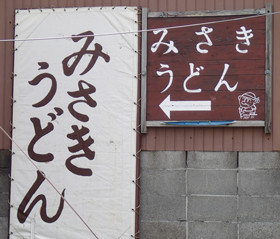 みさき
うどん
みさき
うどん